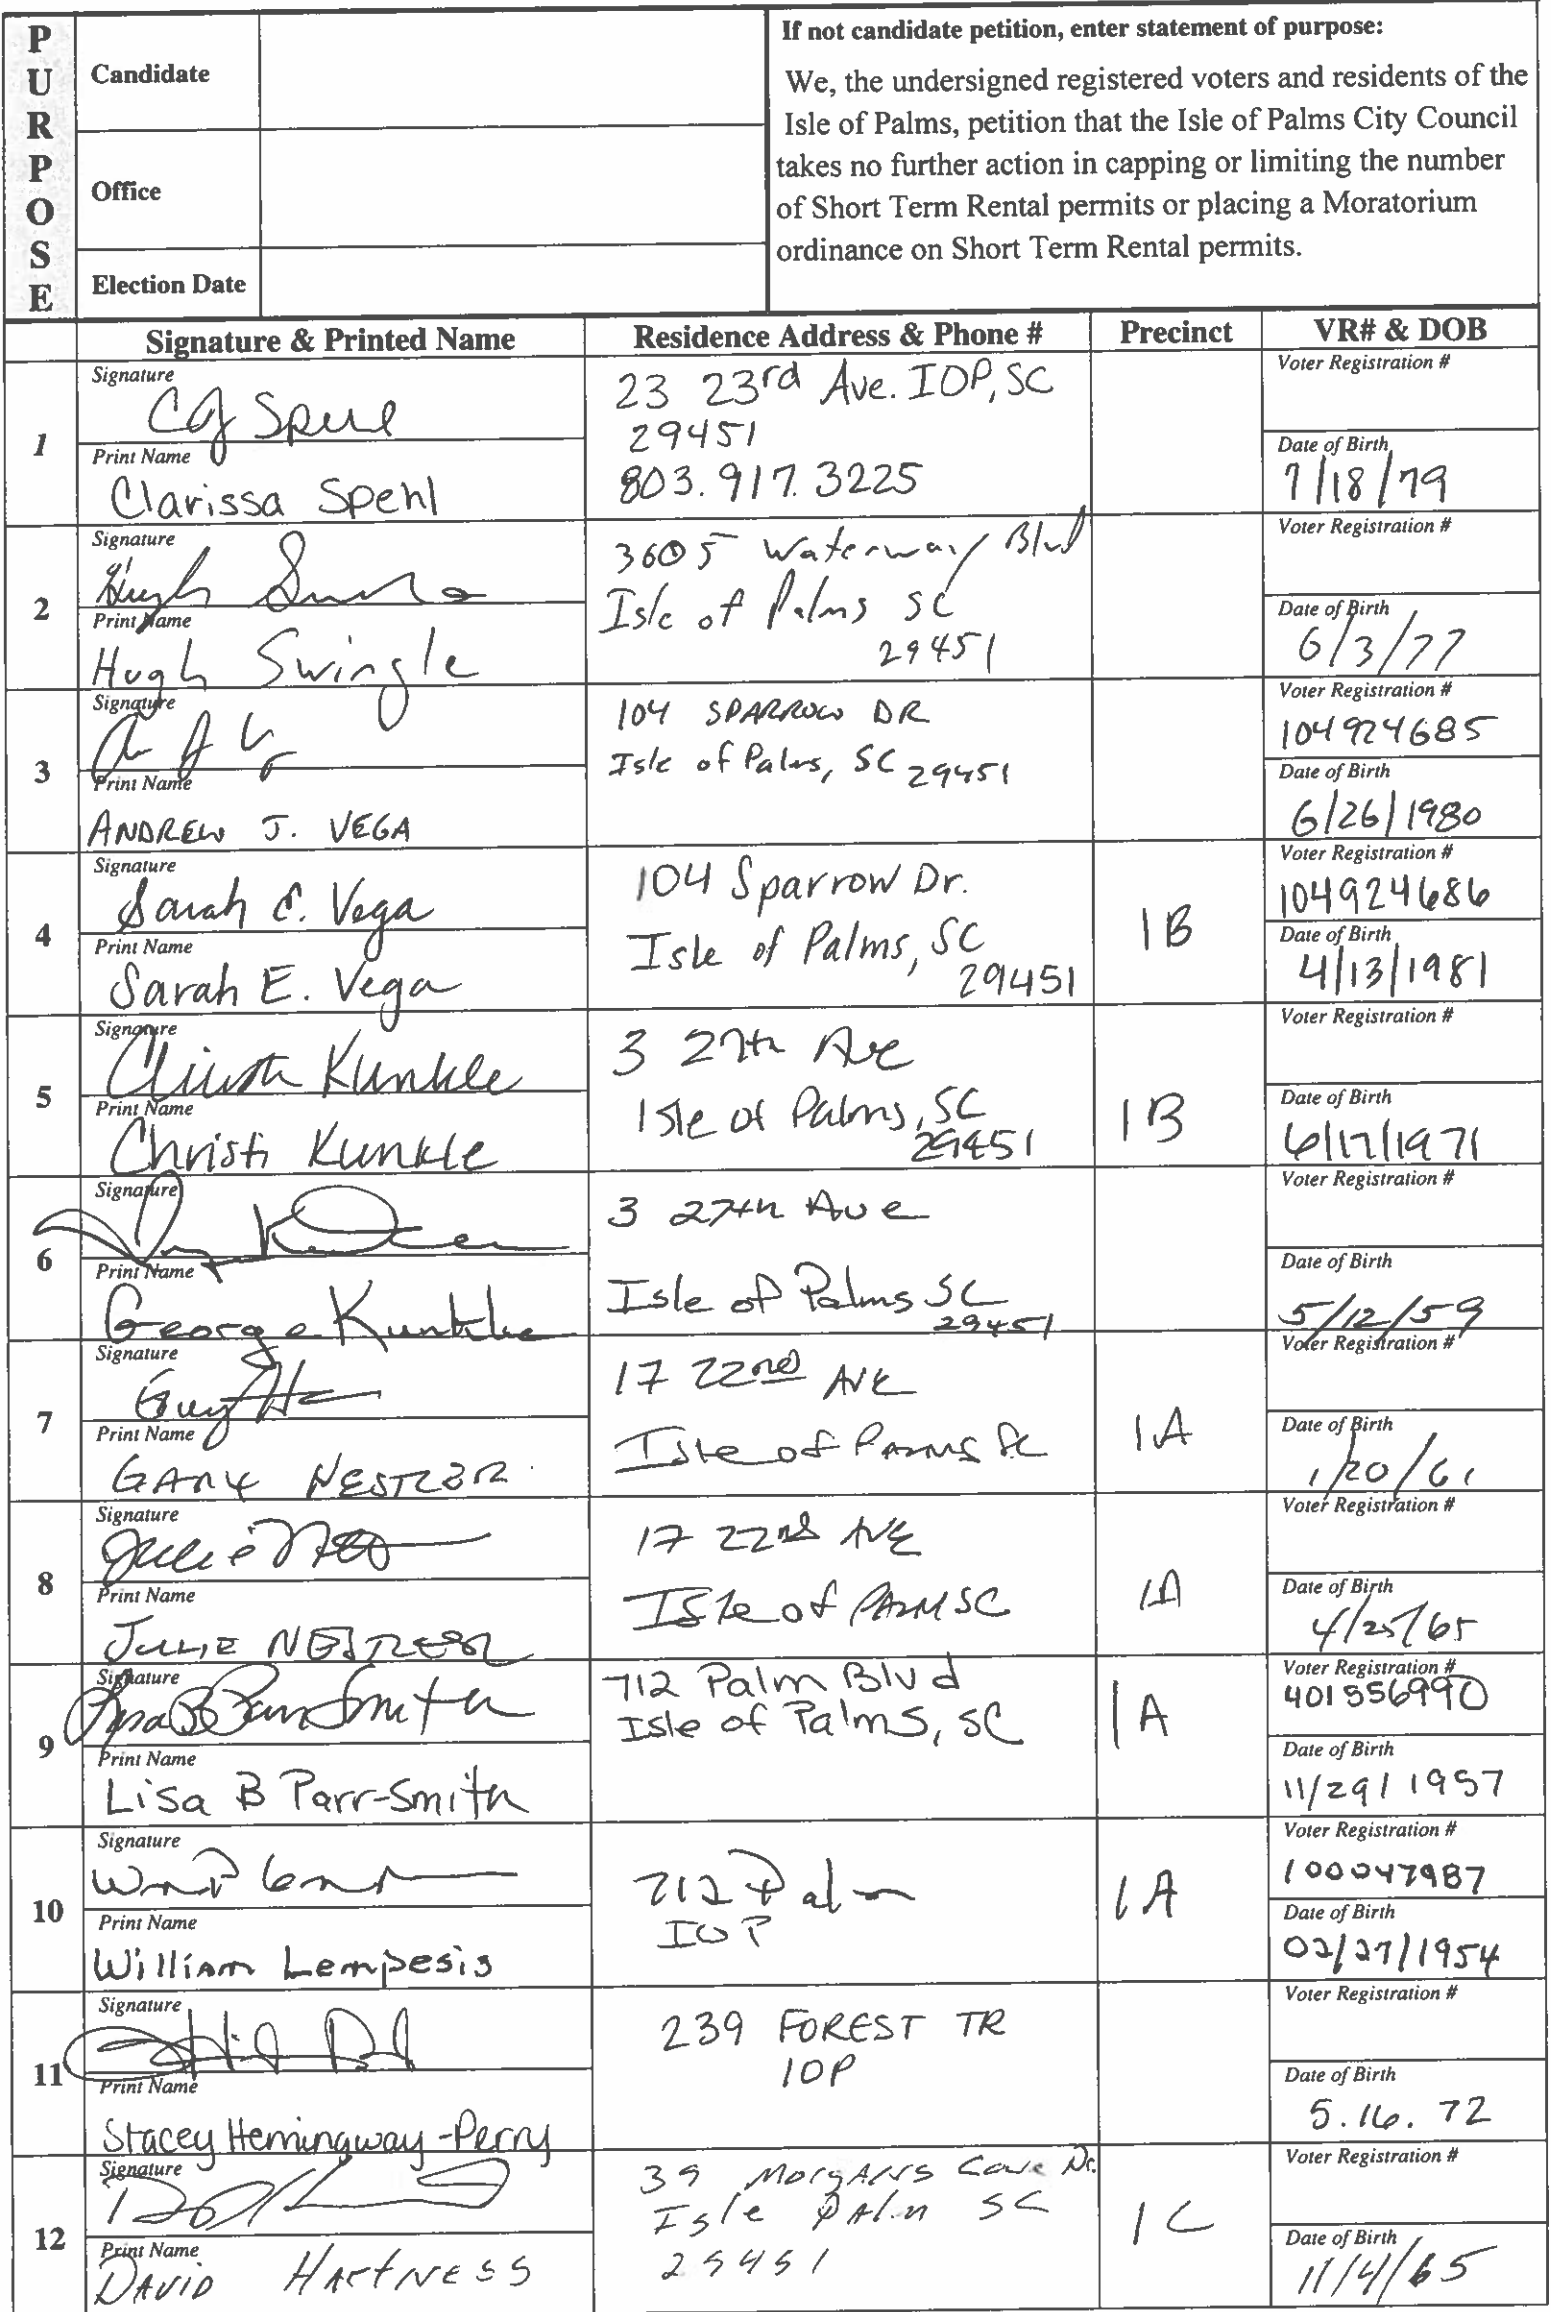 PURPOSE
Candidate
Office
Election Date
If not candidate petition, enter statement of purpose:
We, the undersigned registered voters and residents of the
Isle of Palms, petition that the Isle of Palms City Council
takes no further action in capping or limiting the number
of Short Term Rental permits or placing a Moratorium
ordinance on Short Term Rental permits.
Signature & Printed Name
Residence Address & Phone #
Precinct
VR# & DOB
1
Signature
Print Name
Clarissa Spehl
23 23rd Ave. IOP, SC
29451
803.917.3225
Voter Registration #
Date of Birth
7/18/79
2
Signature
Hugh
Print Name
Hugh Swingle
3605 Waterway Blvd
Isle of Palms SC
29451
Voter Registration #
Date of Birth
6/3/77
3
Signature
Print Name
ANDREW J. VEGA
104 SPARROW DR
Isle of Palms, SC 29451
Voter Registration #
104924685
Date of Birth
6/26/1980
4
Signature
Sarah E. Vega
Print Name
Sarah E. Vega
104 Sparrow Dr.
Isle of Palms, SC
29451
1B
Voter Registration #
104924686
Date of Birth
4/13/1981
5
Signature
Christi Kunkle
Print Name
Christi Kunkle
3 27th Ave
Isle of Palms, SC
29451
1B
Voter Registration #
Date of Birth
6/17/1971
6
Signature
Print Name
George Kunkle
3 27th Ave
Isle of Palms SC
29451
Voter Registration #
Date of Birth
5/12/59
7
Signature
Print Name
GARY NESTLER
17 22nd AVE
Isle of PALMS SC
1A
Voter Registration #
Date of Birth
1/20/61
8
Signature
Julie
Print Name
JULIE NESTLER
17 22nd AVE
Isle of PALM SC
1A
Voter Registration #
Date of Birth
4/25/65
9
Signature
Lisa B Parr-Smith
Print Name
Lisa B Parr-Smith
712 Palm Blvd
Isle of Palms, SC
1A
Voter Registration #
401556990
Date of Birth
11/29/1957
10
Signature
Print Name
William Lempesis
712 Palm
IOP
1A
Voter Registration #
100047987
Date of Birth
02/27/1954
11
Signature
Print Name
Stacey Hemingway-Perry
239 FOREST TR
IOP
Voter Registration #
Date of Birth
5.16.72
12
Signature
Print Name
DAVID HARTNESS
39 Morgans Cove Dr.
Isle Palm SC
29451
1C
Voter Registration #
Date of Birth
11/4/65